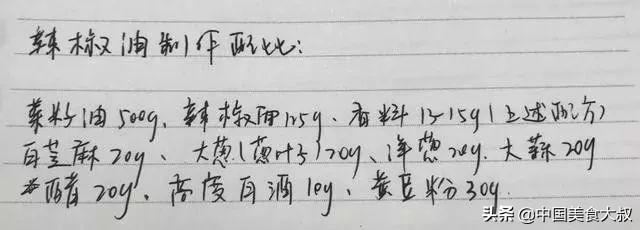 辣椒油制作配比:
菜籽油500g、辣椒面125g、香料13-15g(上述配方)
白芝麻20g、大葱(葱叶子)20g、洋葱20g、大蒜20g
醋20g、高度白酒10g、黄豆粉30g.
头条@中国美食大叔